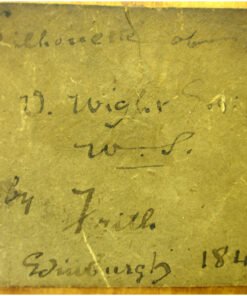 Silhouette of
D. Wight
W. S.
by Frith
Edinburgh 184